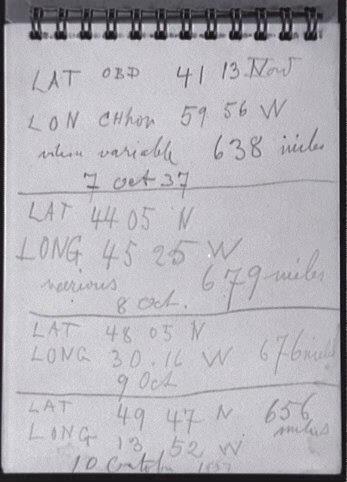 LAT OBD 41 13 Nord
LON CHhon 59 56 W
variable 638 miles
7 oct 37
LAT 44 05 N
LONG 45 25 W
various 679 miles
8 oct.
LAT 48 05 N
LONG 30.16 W 676 miles
9 Oct
LAT 49 47 N 656
LONG 13 52 W miles
10 1937